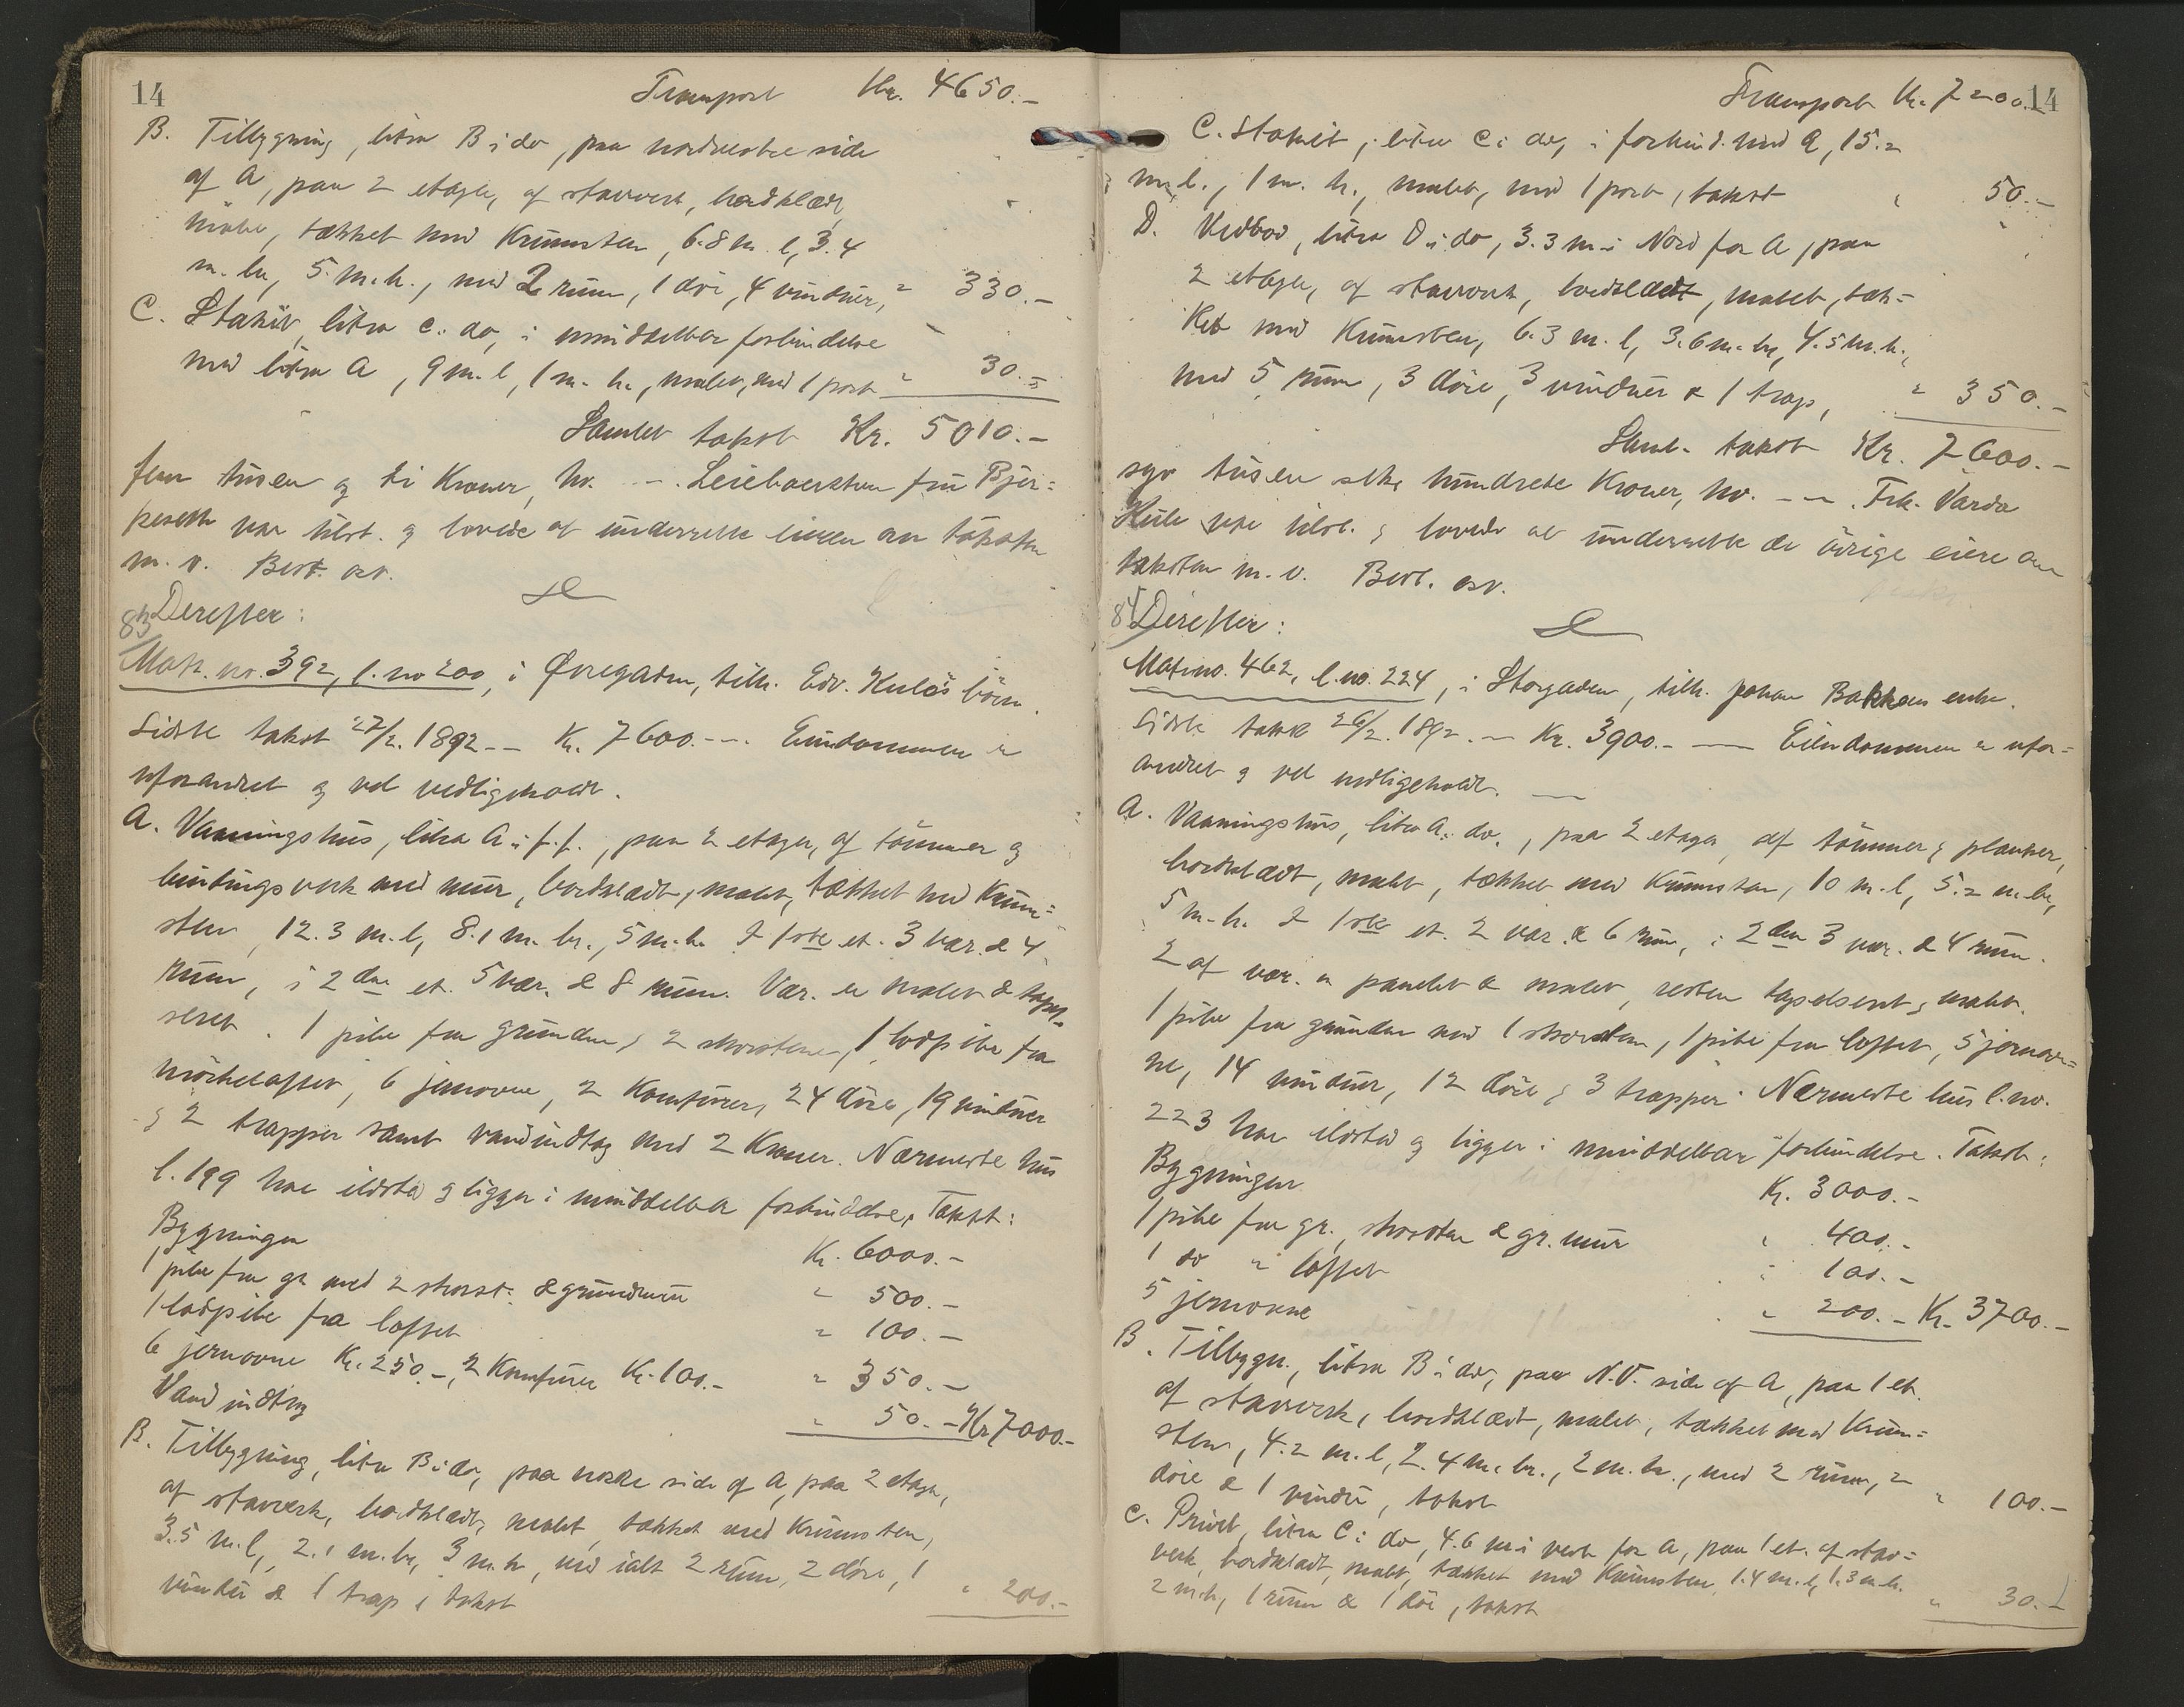 14
Transport Kr. 4650.-
B. Tilbygning, litra B i do, paa nordvestre side
af A, paa 2 etager, af stavverk, bordklædt,
malet, tækket med Krumsten, 6.8 m. l, 3.4
m. br, 5 m. h., med 2 rum, 1 dör, 4 vinduer, " 330.-
C. Stakit, litra C i do, i umiddelbar forbindelse
med litra A, 9 m. l, 1 m. h., malet, med 1 port " 30.-
Samlet takst Kr. 5010.-
fem tusen og ti Kroner, hv. -. fru Bjer=
keseth var tilst. og lovede at underrette eieren om taksten
m. v. Best. osv.
83 Derefter:
Matr. no. 392, l. no 200, i Øvregaden, tilh. Edv. Kuløs börn.
Sidste takst 27/2. 1892 -- Kr. 7600.--. Eiendommen er
uforandret og vel vedligeholdt.
A. Vaaningshus, litra A i f. f., paa 2 etager, af tömmer og
bindingsverk med mur, bordklædt, malet, tækket med Krum=
sten, 12.3 m. l, 8.1 m. br., 5 m. h. I 1ste et. 3 vær. & 4
rum, i 2den et. 5 vær. & 8 rum. Vær. er malet & tapet=
seret. 1 pibe fra grunden, 2 skorstene, 1 lodpibe fra
mörkeloftet, 6 jernovne, 2 Komfurer, 24 döre, 19 vinduer
og 2 trapper samt vandindtag med 2 Kraner. Nærmeste hus
l. 199 har ildsted og ligger i umiddelbar forbindelse. Takst:
Bygningen Kr. 6000.-
1 pibe fra gr. med 2 skorst. & grundmur " 500.-
1 lodpibe fra loftet " 100.-
6 jernovne Kr. 250.-, 2 Komfurer Kr. 100.- " 350.-
Vandindtag " 50.- Kr 7000.-
B. Tilbygning, litra B i do, paa nordre side af A, paa 2 etager,
af stavverk, bordklædt, malet, tækket med Krumsten,
3.5 m. l, 2.1 m. br, 3 m. h, med ialt 2 rum, 2 döre, 1
vindu & 1 trap, takst " 200.-
Transport Kr. 7200.- 14
C. Stakit, litra C i do, i forbind. med A, 15.2
m. l., 1 m. h., malet, med 1 port, takst " 50.-
D. Vedbod, litra D i do, 3.3 m. i Nord for A, paa
2 etager, af stavverk, bordklædt, malet, tæk=
ket med Krumsten, 6.3 m. l, 3.6 m. br, 4.5 m. h.,
med 5 rum, 3 döre, 3 vinduer & 1 trap, " 350.-
Saml. takst Kr. 7600.-
syv tusen seks hundrede Kroner, hv. --. Frk. Varda
Kuløs var tilst. og lovede at underrette de övrige eiere om
taksten m. v. Besl. osv.
84 Derefter:
Matr. no. 462, l. no. 224, i Storgaden, tilh. Johan Bakkens enke.
Sidste takst 26/2. 1892. - Kr. 3900.- -- Eiendommen er ufor=
andret og vel vedligeholdt. --
A. Vaaningshus, litra A i do., paa 2 etager, af tömmer & planker,
bordklædt, malet, tækket med Krumsten, 10 m. l, 5.2 m. br,
5 m. h. I 1ste et. 2 vær. & 6 rum, i 2den 3 vær. & 4 rum.
2 af vær. er panelet & malet, resten tapetseret & malet.
1 pibe fra grunden med 1 skorsten, 1 pibe fra loftet, 5 jernov=
ne, 14 vinduer, 12 döre & 3 trapper. Nærmeste hus l. no.
223 har ildsted og ligger i umiddelbar forbindelse. Takst:
Bygningen Kr. 3000.-
1 pibe fra gr., skorsten & gr. mur " 400.-
1 do " loftet " 100.-
5 jernovne " 200.- Kr. 3700.-
B. Tilbygn., litra B i do, paa N.V. side af A, paa 1 et.
af stavverk, bordklædt, malet, tækket med Krum=
sten, 4.2 m. l, 2.4 m. br., 2 m. h., med 2 rum, 2
döre & 1 vindu, takst " 100.-
C. Privet, litra C i do, 4.6 m. i vest for A, paa 1 et. af stav=
verk, bordklædt, malet, tækket med Krumsten, 1.4 m. l, 1.3 m. b.
2 m. h, 1 rum & 1 dör, takst " 30.-